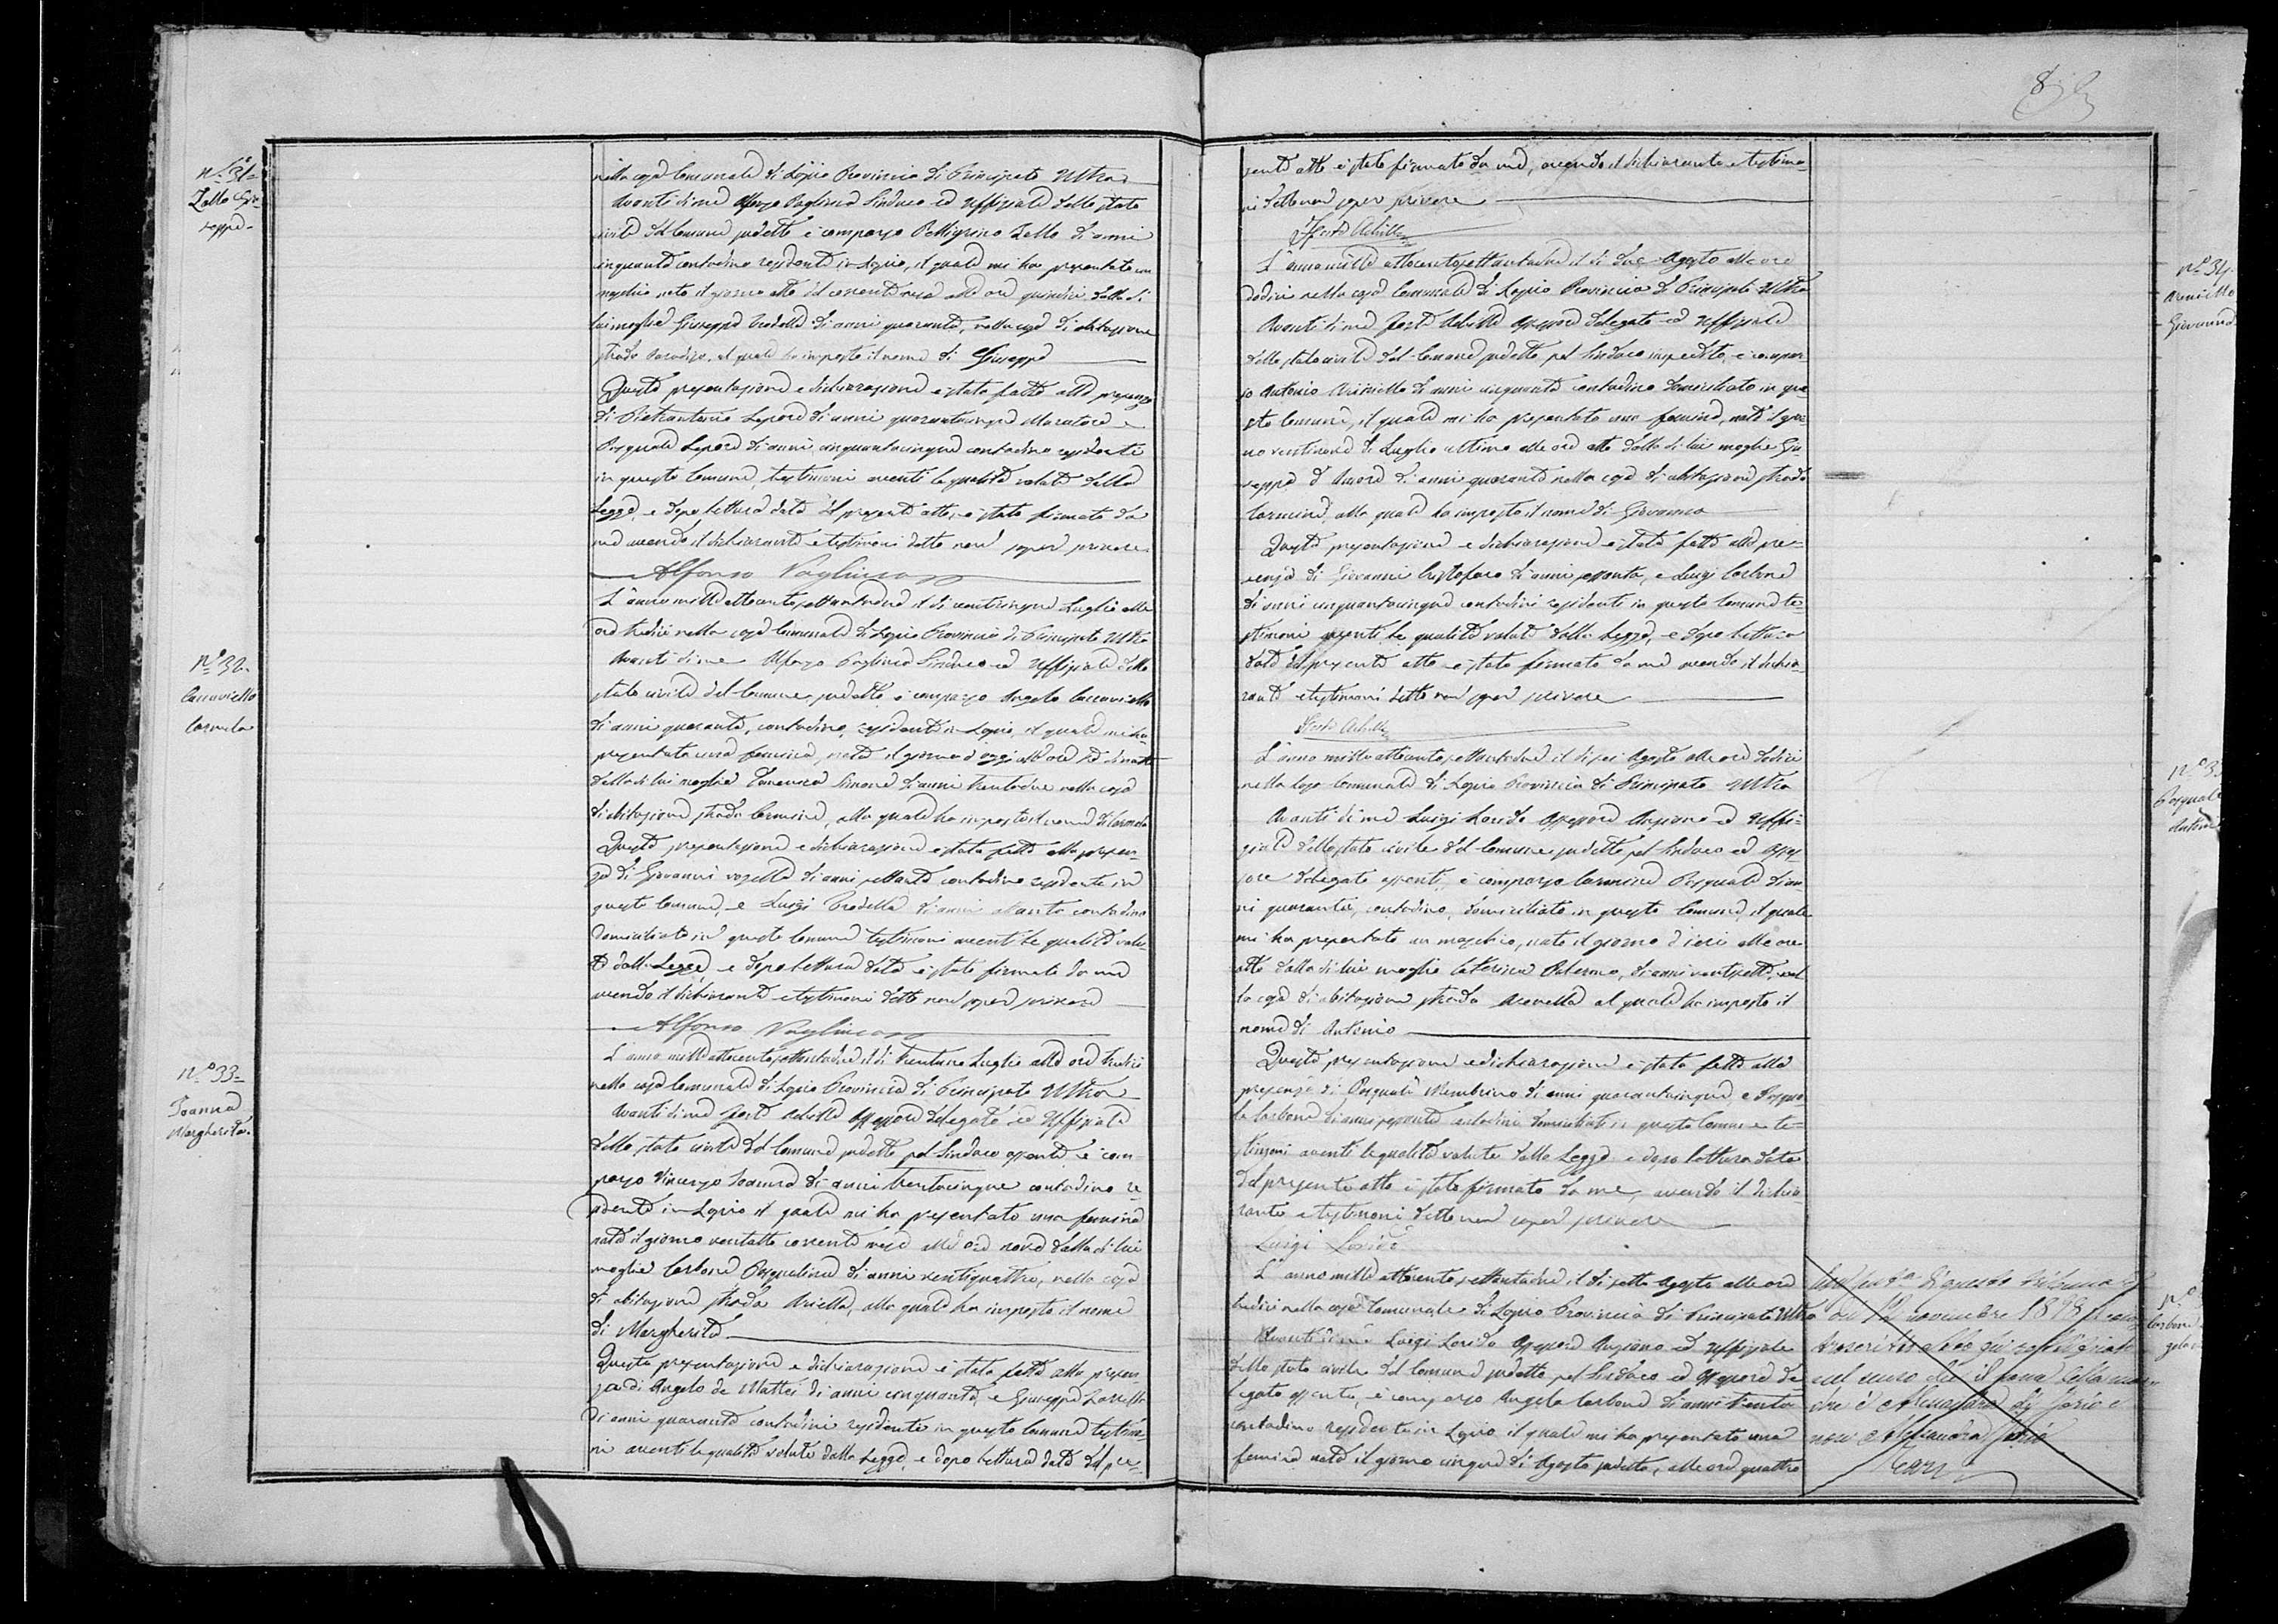 8
N.° 31=
Zollo Giu-
seppe=
nella casa Comunale di Lapio Provincia di Principato Ultra
Avanti di me Alfonso Pagliuca Sindaco ed Uffiziale dello stato
civile del Comune sudetto è comparso Pellegrino Zollo di anni
cinquanta contadino residente in Lapio, il quale mi ha presentato un
maschio nato il giorno otto del corrente mese alle ore quindici dalla di
lui moglie Giuseppa Trodella di anni quaranta, nella casa di abitazione
strada, al quale ha imposto il nome di Giuseppe
Questa presentazione e dichiarazione è stata fatta alla presenza
di Pietrantonio Lepore di anni quarantacinque Muratore e
Pasquale Lepore di anni cinquantacinque contadino residenti
in questo Comune, testimoni aventi le qualità volute dalla
Legge, e dopo lettura data del presente atto, è stato firmato da
me avendo il dichiarante e testimoni detto non saper scrivere
Alfonso Pagliuca
N.° 32=
Caccaviello
Carmela
L'anno mille ottocentosettantadue il di venticinque Luglio alle
ore tredici nella casa Comunale di Lapio Provincia di Principato Ultra
Avanti di me Alfonso Pagliuca Sindaco ed Uffiziale dello
stato civile del Comune sudetto è comparso Angelo Caccaviello
di anni quaranta, contadino, residente in Lapio, il quale mi ha
presentata una femina, nata il giorno d'oggi alle ore di notte
dalla di lui moglie Simone di anni trentadue nella casa
di abitazione strada Carmine, alla quale ha imposto il nome di Carmela
Questa presentazione e dichiarazione è stata fatta alla presen-
za di Giovanni di anni settanta contadino residente in
questo Comune, e Luigi Trodella di anni contadino
domiciliato in questo Comune testimoni aventi le qualità volu-
te dalla Legge, e dopo lettura data è stato firmato da me
avendo il dichiarante e testimoni detto non saper scrivere
Alfonso Pagliuca
N.° 33=
Ioanna
Margherita=
L'anno mille ottocentosettantadue il di trentuno Luglio alle ore tredici
nella casa Comunale di Lapio Provincia di Principato Ultra
Avanti di me Forte Achille Assessore delegato ed Uffiziale
dello stato civile del Comune sudetto pel Sindaco assente è com-
parso Vincenzo Ioanna di anni trentacinque contadino re-
sidente in Lapio il quale mi ha presentato una femina
nata il giorno ventotto corrente mese alle ore nove dalla di lui
moglie Carbone Pasqualina di anni ventiquattro, nella casa
di abitazione strada Ariella, alla quale ha imposto il nome
di Margherita
Questa presentazione e dichiarazione è stata fatta alla presen-
za di Angelo de Mattei di anni cinquanta, e Giuseppe
di anni quaranta contadini residente in questo Comune testimo-
ni aventi le qualità volute dalla Legge, e dopo lettura data del pre-
sente atto è stato firmato da me, avendo il dichiarante e testimo-
ni detto non saper scrivere
Forte Achille
N.° 34=
Arminello
Giovanna
L'anno mille ottocentosettantadue il di due Agosto alle ore
dodici nella casa Comunale di Lapio Provincia di Principato Ultra
Avanti di me Forte Achille Assessore delegato ed Uffiziale
dello stato civile del Comune sudetto, pel Sindaco impedito, è compar-
so Antonio di anni cinquanta contadino domiciliato in que-
sto Comune, il quale mi ha presentato una femina, nata il gior-
no ventinove di Luglio ultimo alle ore otto dalla di lui moglie Giu-
seppa d'Amore di anni quaranta nella casa di abitazione strada
Carmine, alla quale ha imposto il nome di Giovanna
Questa presentazione e dichiarazione è stata fatta alla pre-
senza di Giovanni Cristofaro di anni sessanta, e Luigi Carbone
di anni cinquantacinque contadini residente in questo Comune te-
stimoni aventi le qualità volute dalla Legge, e dopo lettura
data del presente atto è stato firmato da me avendo il dichia-
rante e testimoni detto non saper scrivere
Forte Achille
N.° 3
Pasquale
Antonio
L'anno mille ottocentosettantadue il di sei Agosto alle ore dodici
nella casa Comunale di Lapio Provincia di Principato Ultra
Avanti di me Luigi Loride Assessore Anziano ed Uffi-
ziale dello stato civile del Comune sudetto pel Sindaco ed Asses-
sore delegato assenti, è comparso Carmine Pasquale di an-
ni quaranta, contadino, domiciliato in questo Comune, il quale
mi ha presentato un maschio, nato il giorno d'ieri alle ore
otto dalla di lui moglie Caterina Palermo, di anni ventisette, nel
la casa di abitazione strada Arenella al quale ha imposto il
nome di Antonio
Questa presentazione e dichiarazione è stata fatta alla
presenza di Pasquale Membrino di anni quarantacinque, e Pasqua-
le Carbone di anni sessanta contadini domiciliati in questo Comune te-
stimoni aventi le qualità volute dalla Legge e dopo lettura data
del presente atto è stato firmato da me, avendo il dichia-
rante e testimoni detto non saper scrivere
Luigi Loride
N.°
Carbone
L'anno mille ottocentosettantadue il di sette Agosto alle ore
tredici nella casa Comunale di Lapio Provincia di Principato Ultra
Avanti di me Luigi Loride Assessore Anziano ed Uffiziale
dello stato civile del Comune sudetto pel Sindaco ed Assessore de-
legato assente, è comparso Angelo Carbone di anni trenta
contadino residente in Lapio il quale mi ha presentato una
femina nata il giorno cinque di Agosto sudetto, alle ore quattro
di questo tribunale
novembre 1898
nel senso che il nome della ma-
dre è Alessandra
non Alessandra